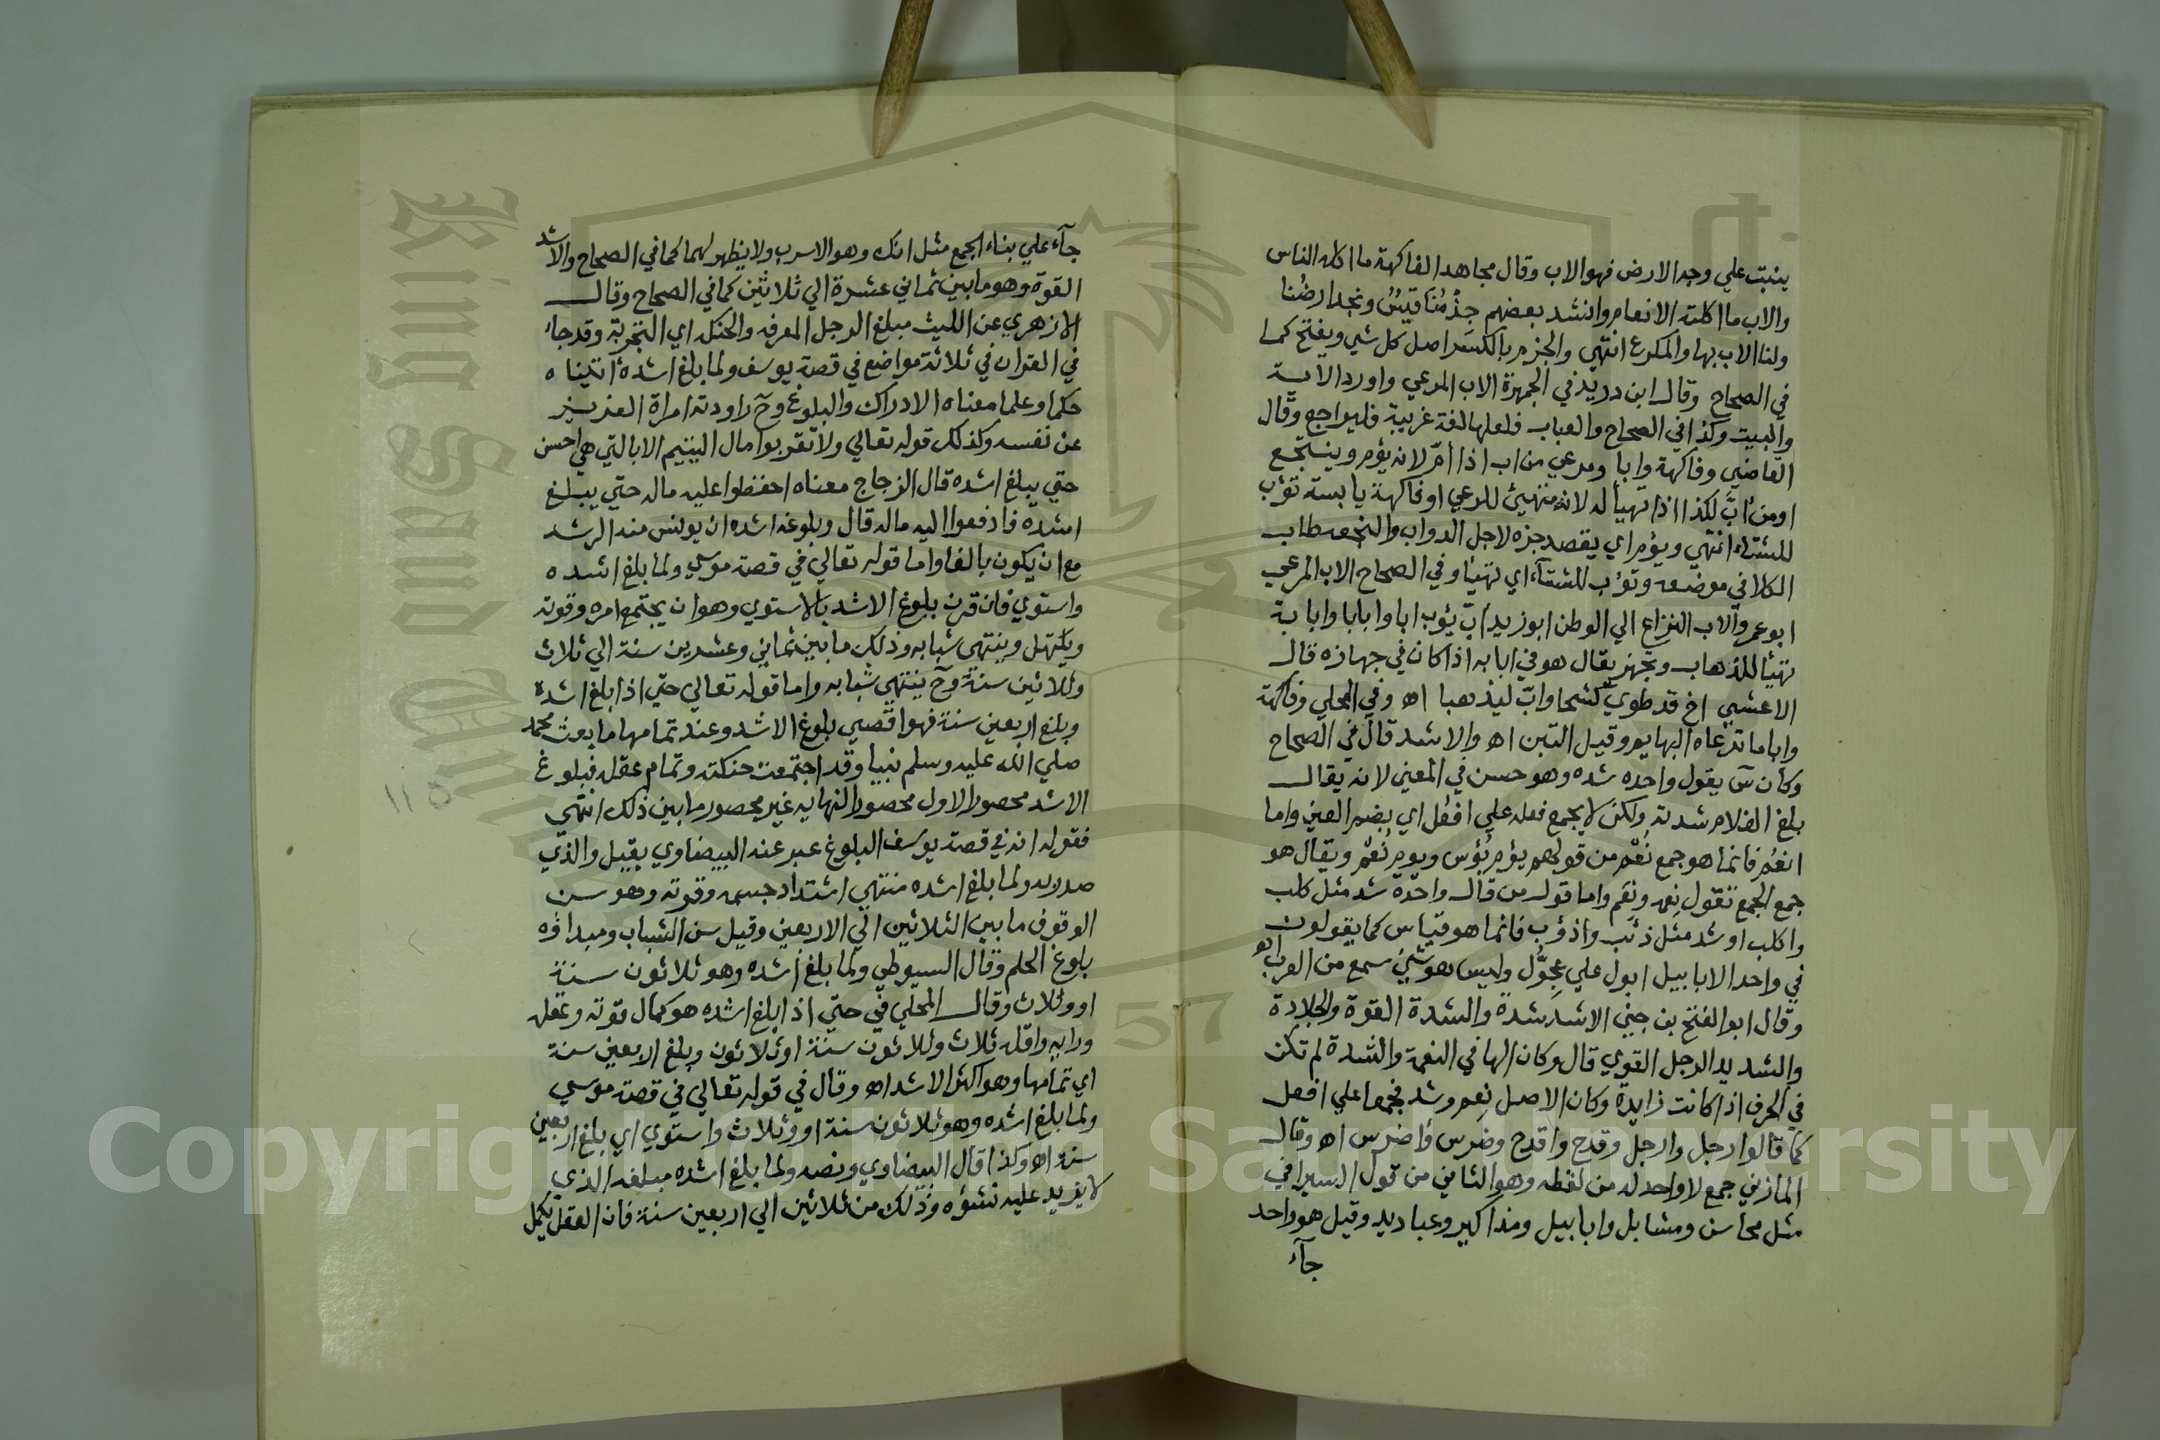 ينبت علي وجه الارض فهو الاب وقال مجاهد الفاكهة ما اكله الناس
والاب ما اكلته الانعام وانشد بعضهم جذْمُنا قيسٌ ونجد ارضُنا
ولنا الاب بها والمكرع انتهي والجزم بالكسر اصل كل شي ويفتح كما
في الصحاح وقال ابن دريد في الجمهرة الاب المرعي واورد الاية
والبيت وكذا في الصحاح والعباب فلعلها لغة غريبة فليراجع وقال
القاضي وفاكهة وابا ومرعي من اب اذا امّ لانه يؤم وينتجع
اومن ابّ لكذا اذا تهيأ له لانه متهيئ للرعي او فاكهة يابسة تؤب
للشتاء انتهي ويؤم اي يقصد جزه لاجل الدواب والنجعة طلب
الكلا في موضعه وتؤب للشتآء اي تهيئا وفي الصحاح الاب المرعي
ابو عمرو الاب النزاع الي الوطن ابو زيد ابّ يؤب ابا وابابا وابابة
تهيئا للذهاب وتجهز يقال هو في ابابه اذا كان في جهازه قال
الاعشي اخ قد طوي كشحا وابّ ليذهبا اه وفي المحلي وفاكهة
وابا ما ترعاه البهايم وقيل التبن اه والاشد قال في الصحاح
وكان سَ يقول واحده شده وهو حسن في المعني لانه يقال
بلغ الغلام شدته ولكن لا يجمع فعله علي افعُل اي بضم العين واما
انعُم فانما هو جمع نُعْم من قولهم يؤم بُؤس ويوم نُعْم ويقال هو
جمع الجمع تقول نعمه ونِعَم واما قول من قال واحدة شد مثل كلب
واكلب او شد مثل ذئب واذؤب فانما هو قياس كما يقولون
في واحد الابابيل ابول علي عِجوَّل وليس هو شيئ سمع من العرب ابو
وقال ابو الفتح بن جني الاشد شدة والشدة القوة والجلادة
والشديد الرجل القوي قال وكان الها في النعمة والشدة لم تكن
في الحرف اذا كانت زايدة وكان الاصل نِعم وشد فجمعا علي افعل
كما قالوا رجل وارجل وقدح واقدح وضرس واضرس اه وقال
المازني جمع لا واحد له من لفظه وهو الثاني من قول السيرافي
مثل محاسن ومشابل وابابيل ومذاكير وعباديد وقيل هو واحد
جآء
جآء علي بناء الجمع مثل انك وهو الاسرب ولا يظهر لهما كما في الصحاح والاشد
القوة وهو ما بين ثماني عشرة الي ثلاثين كما في الصحاح وقال
الازهري عن الليث مبلغ الرجل المعرفه والحنكه اي التجربة وقد جاء
في القران في ثلاثة مواضع في قصة يوسف ولما بلغ اشده اتيناه
حكما وعلما معناه الادراك والبلوغ وحَ راودته امراة العزيز
عن نفسه وكذلك قوله تعالي ولا تقربوا مال اليتيم الا بالتي هي احسن
حتي يبلغ اشده قال الزجاج معناه احفظوا عليه ماله حتي يبلغ
اشده فادفعوا اليه ماله قال وبلوغه اشده ان يونس منه الرشد
مع ان يكون بالغا واما قوله تعالي في قصة موسي ولما بلغ اشده
واستوي فان قرن بلوغ الاشد بالاستوي وهو ان يجتمع امره وقوته
ويكتهل وينتهي شبابه وذلك ما بين ثماني وعشرين سنة الي ثلاث
وثلاثين سنة وحَ ينتهي شبابه واما قوله تعالي حتي اذا بلغ اشده
وبلغ اربعين سنة فهو اقصي بلوغ الاشد وعند تمامها ما بعث محمد
صلي الله عليه وسلم نبيا وقد اجتمعت حنكته وتمام عقله فبلوغ
الاشد محصور الاول محصور النهايه غير محصور ما بين ذلك انتهي
فقوله انه في قصة يوسف البلوغ عبر عنه البيضاوي بقيل والذي
صدر به ولما بلغ اشده منتهي اشتداد جسمه وقوته وهو سن
الوقوف ما بين الثلاثين الي الاربعين وقيل سن الشباب ومبداؤه
بلوغ الحلم وقال السيوطي ولما بلغ اشده وهو ثلاثون سنة
او وثلاث وقال المحلي في حتي اذا بلغ اشده هو كمال قوته وعقله
ورايه واقله ثلاث وثلاثون سنة او ثلاثون وبلغ اربعين سنة
اي تمامها وهو اكثر الاشد اه وقال في قوله تعالي في قصة موسي
ولما بلغ اشده وهو ثلاثون سنة او وثلاث واستوي اي بلغ اربعين
سنة اه وكذا قال البيضاوي ونصه ولما بلغ اشده مبلغه الذي
لا يزيد عليه نشؤه وذلك من ثلاثين الي اربعين سنة فان العقل يكمل
١١٥
King Saud University
1957
Copyright © King Saud University